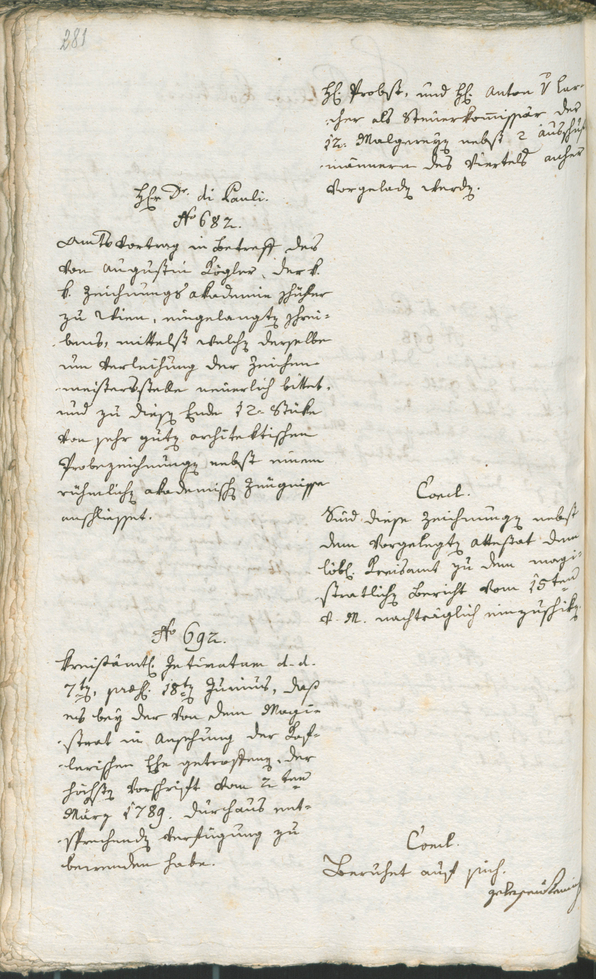 281
H: Probst, und H: Anton v Lar-
cher als Steuerkommissär der
12. Malgreyen nebst 2 Ausschuß
männern des Viertels anher
vorgeladen werden.
Herr Dr. di Pauli.
No 682.
Amtsvortrag in Betreff des
von Augustin Kögler, der k.
k. Zeichnungs akademie Schüler
zu Wien, eingelangten Schrei-
bens, mittelst welchen derselbe
um Verleihung der Zeichen
meistersstelle neuerlich bittet.
und zu diesem Ende 12. Stüke
von sehr guten architektischen
Probezeichnungen nebst einem
rühmlichen akademischen Zeugnisse
anschliesset.
Concl.
Sind diese Zeichnungen nebst
dem vorgelegten Attestat dem
löbl. Kreisamt zu dem magi-
stratlichen Bericht vom 15ten
d. M. nachträglich einzuschiken.
No 692.
Kreisämtl. Intimatum d. d.
7ten, pres. 18ten Junius, daß
es bey der von dem Magi-
strat in Ansehung der
lerischen Ehe getroffenen, der
höchsten Vorschrift vom 2ten
März 1789. durchaus ent-
sprechenden Verfügung zu
bewenden habe.
Concl.
Beruhet auf sich.